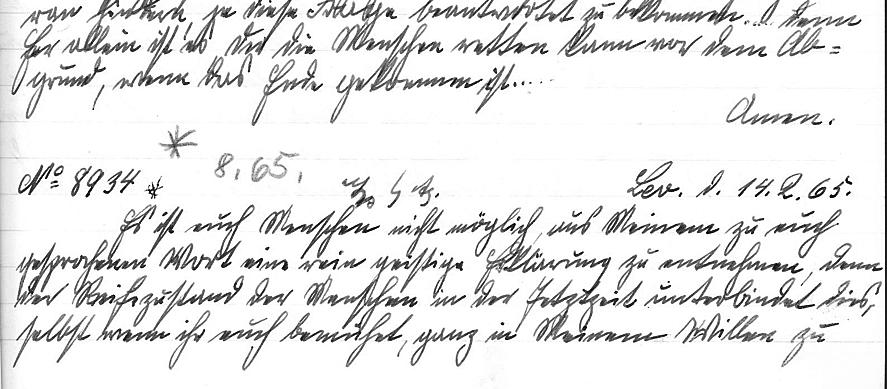 ran hindern, je diese Frage beantwortet zu bekommen..... denn
Er allein ist es, Der die Menschen retten kann vor dem Ab=
grund, wenn das Ende gekommen ist.....
Amen.
*
8.65.
No 8934 * Lev. d. 14.2.65.
Es ist euch Menschen nicht möglich, aus Meinem zu euch
gesprochenen Wort eine rein geistige Erklärung zu entnehmen, denn
der Reifezustand der Menschen in der Jetztzeit unterbindet dies,
selbst wenn ihr euch bemühet, ganz in Meinem Willen zu